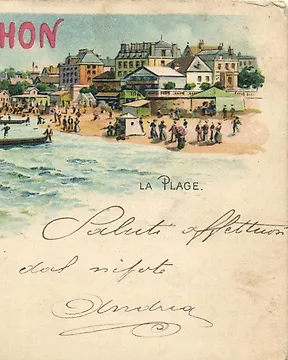 HON
LA PLAGE.
Saluti affettuosi
dal nipote
Andrea